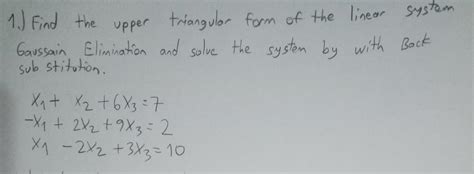 1.) Find the upper triangular form of the linear system
Gaussain Elimination and solve the system by with Back
sub stitution.
X1 + X2 + 6X3 = 7
-X1 + 2X2 + 9X3 = 2
X1 - 2X2 + 3X3 = 10